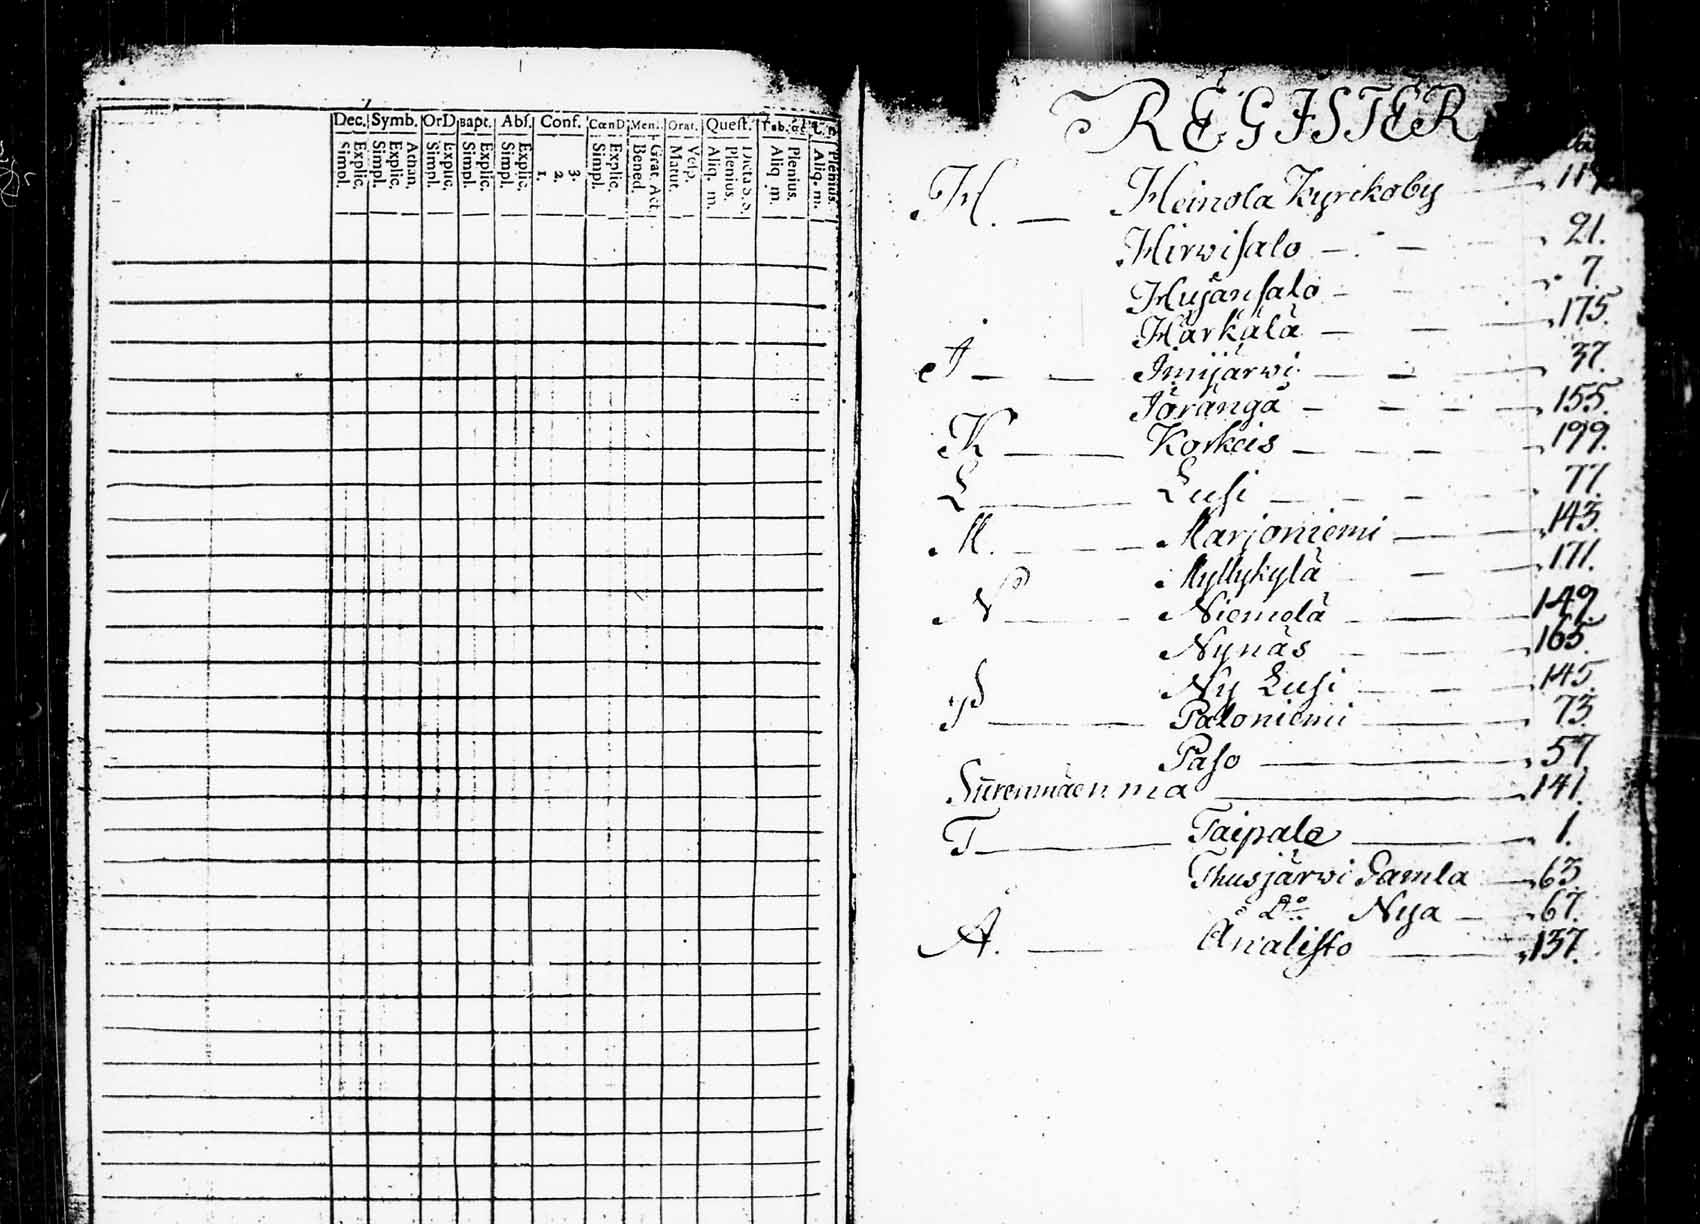 Dec. Symb. Or.D Bapt. Abs. Conf. CœnD Men. Orat. Quest. Tab. œc.
Simpl. Explic. Simpl. Explic. Athan. Simpl. Explic. Simpl. Explic. Simpl. Explic. 1. 2. 3. Simpl. Explic. Bened. Grat. Act. Matut. Vesp. Aliq. m. Plenius. Dicta S.S. Aliq. m. Plenius. Aliq. m. Plenius.
REGISTER
H. — Heinola Kyrckoby
Hirwisalo — 21.
Hujansalo — 7.
Härkälä — 175.
I — Imijärwi — 37.
Järänga — 155.
K — Korkeis — 199.
L — Lusi — 77.
M. — Marjoniemi — 143.
Myllykylä — 171.
N — Niemelä — 149.
Nynäs — 165.
Ny Lusi — 145.
P — Paloniemi — 73.
Paso — 57.
Sürenmäenma — 141.
T — Taipale — 1.
Thusjärwi Gamla — 63.
Do Nya — 67.
Å. — Åwalisto — 137.